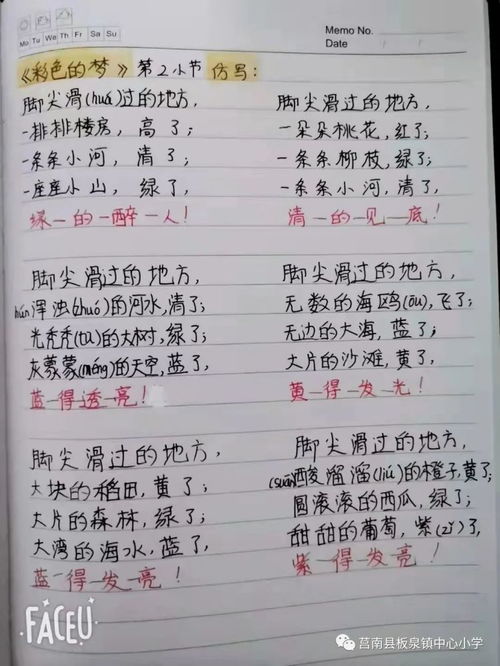 Memo No.
Mo Tu We Th Fr Sa Su
Date / /
《彩色的梦》第2小节 仿写：
脚尖滑(huá)过的地方，
一排排楼房，高了；
一条条小河，清了；
一座座小山，绿了，
绿—的—醉—人！
脚尖滑过的地方，
一朵朵桃花，红了；
一条条柳枝，绿了；
一条条小河，清了，
清—的—见—底！
脚尖滑过的地方，
hún浑浊(zhuó)的河水，清了；
光秃秃(tū)的大树，绿了；
灰蒙蒙(méng)的天空，蓝了，
蓝—得透—亮！
脚尖滑过的地方，
无数的海鸥(ōu)，飞了；
无边的大海，蓝了；
大片的沙滩，黄了，
黄—得—发—光！
脚尖滑过的地方，
大块的稻田，黄了；
大片的森林，绿了；
大湾的海水，蓝了，
蓝—得—发—亮！
脚尖滑过的地方，
(suān)酸溜溜(liū)的橙子，黄了；
圆滚滚的西瓜，绿了；
甜甜的葡萄，紫(zǐ)了，
紫—得—发—亮！
FACEU
莒南县板泉镇中心小学